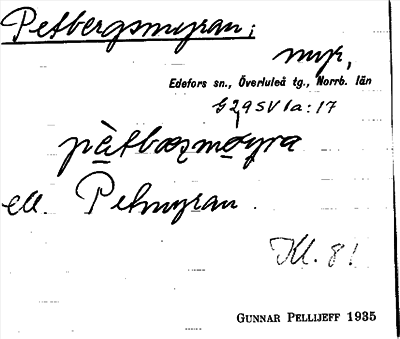 Petbergsmyran;
myr,
Edefors sn., Överluleå tg., Norrb. län
G29SV1a:17
pètbæzmøyra
ell. Petmyran.
Kl. 8!
GUNNAR PELLIJEFF 1935